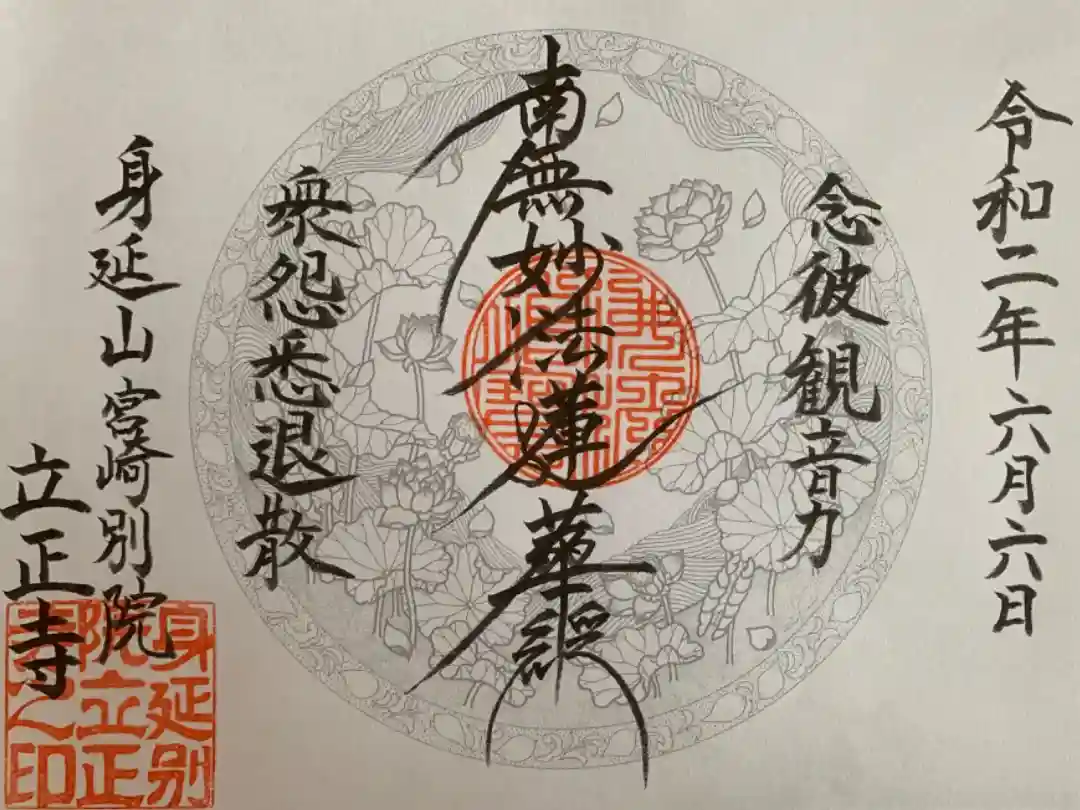 令和二年六月六日
念彼観音力
南無妙法蓮華經
衆怨悉退散
身延山宮崎別院
立正寺
身延別
院立正
寺之印